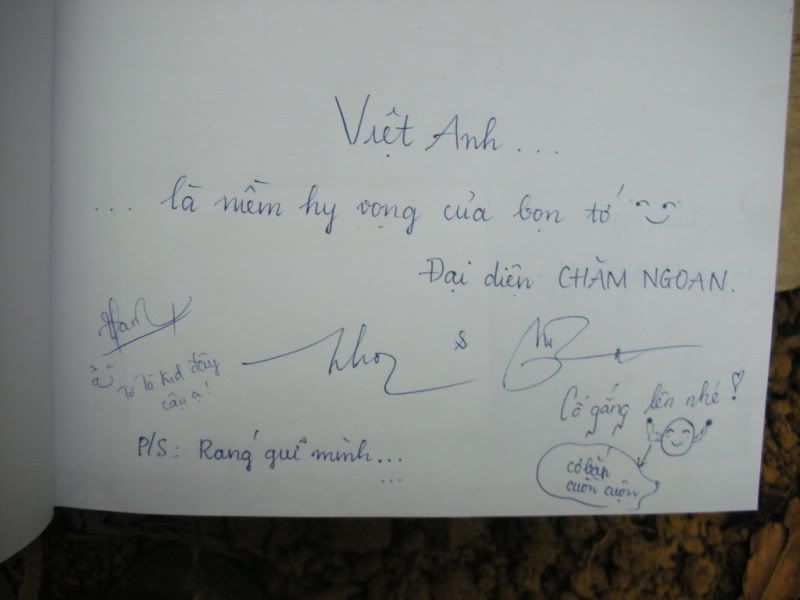 Việt Anh...
... là niềm hy vọng của bọn tớ
Đại diện CHĂM NGOAN.
Tớ là Kid đây
cậu ạ!
Cố gắng lên nhé!
P/S: Rang guĩ mình...
...
cơ bắp
cuồn cuộn